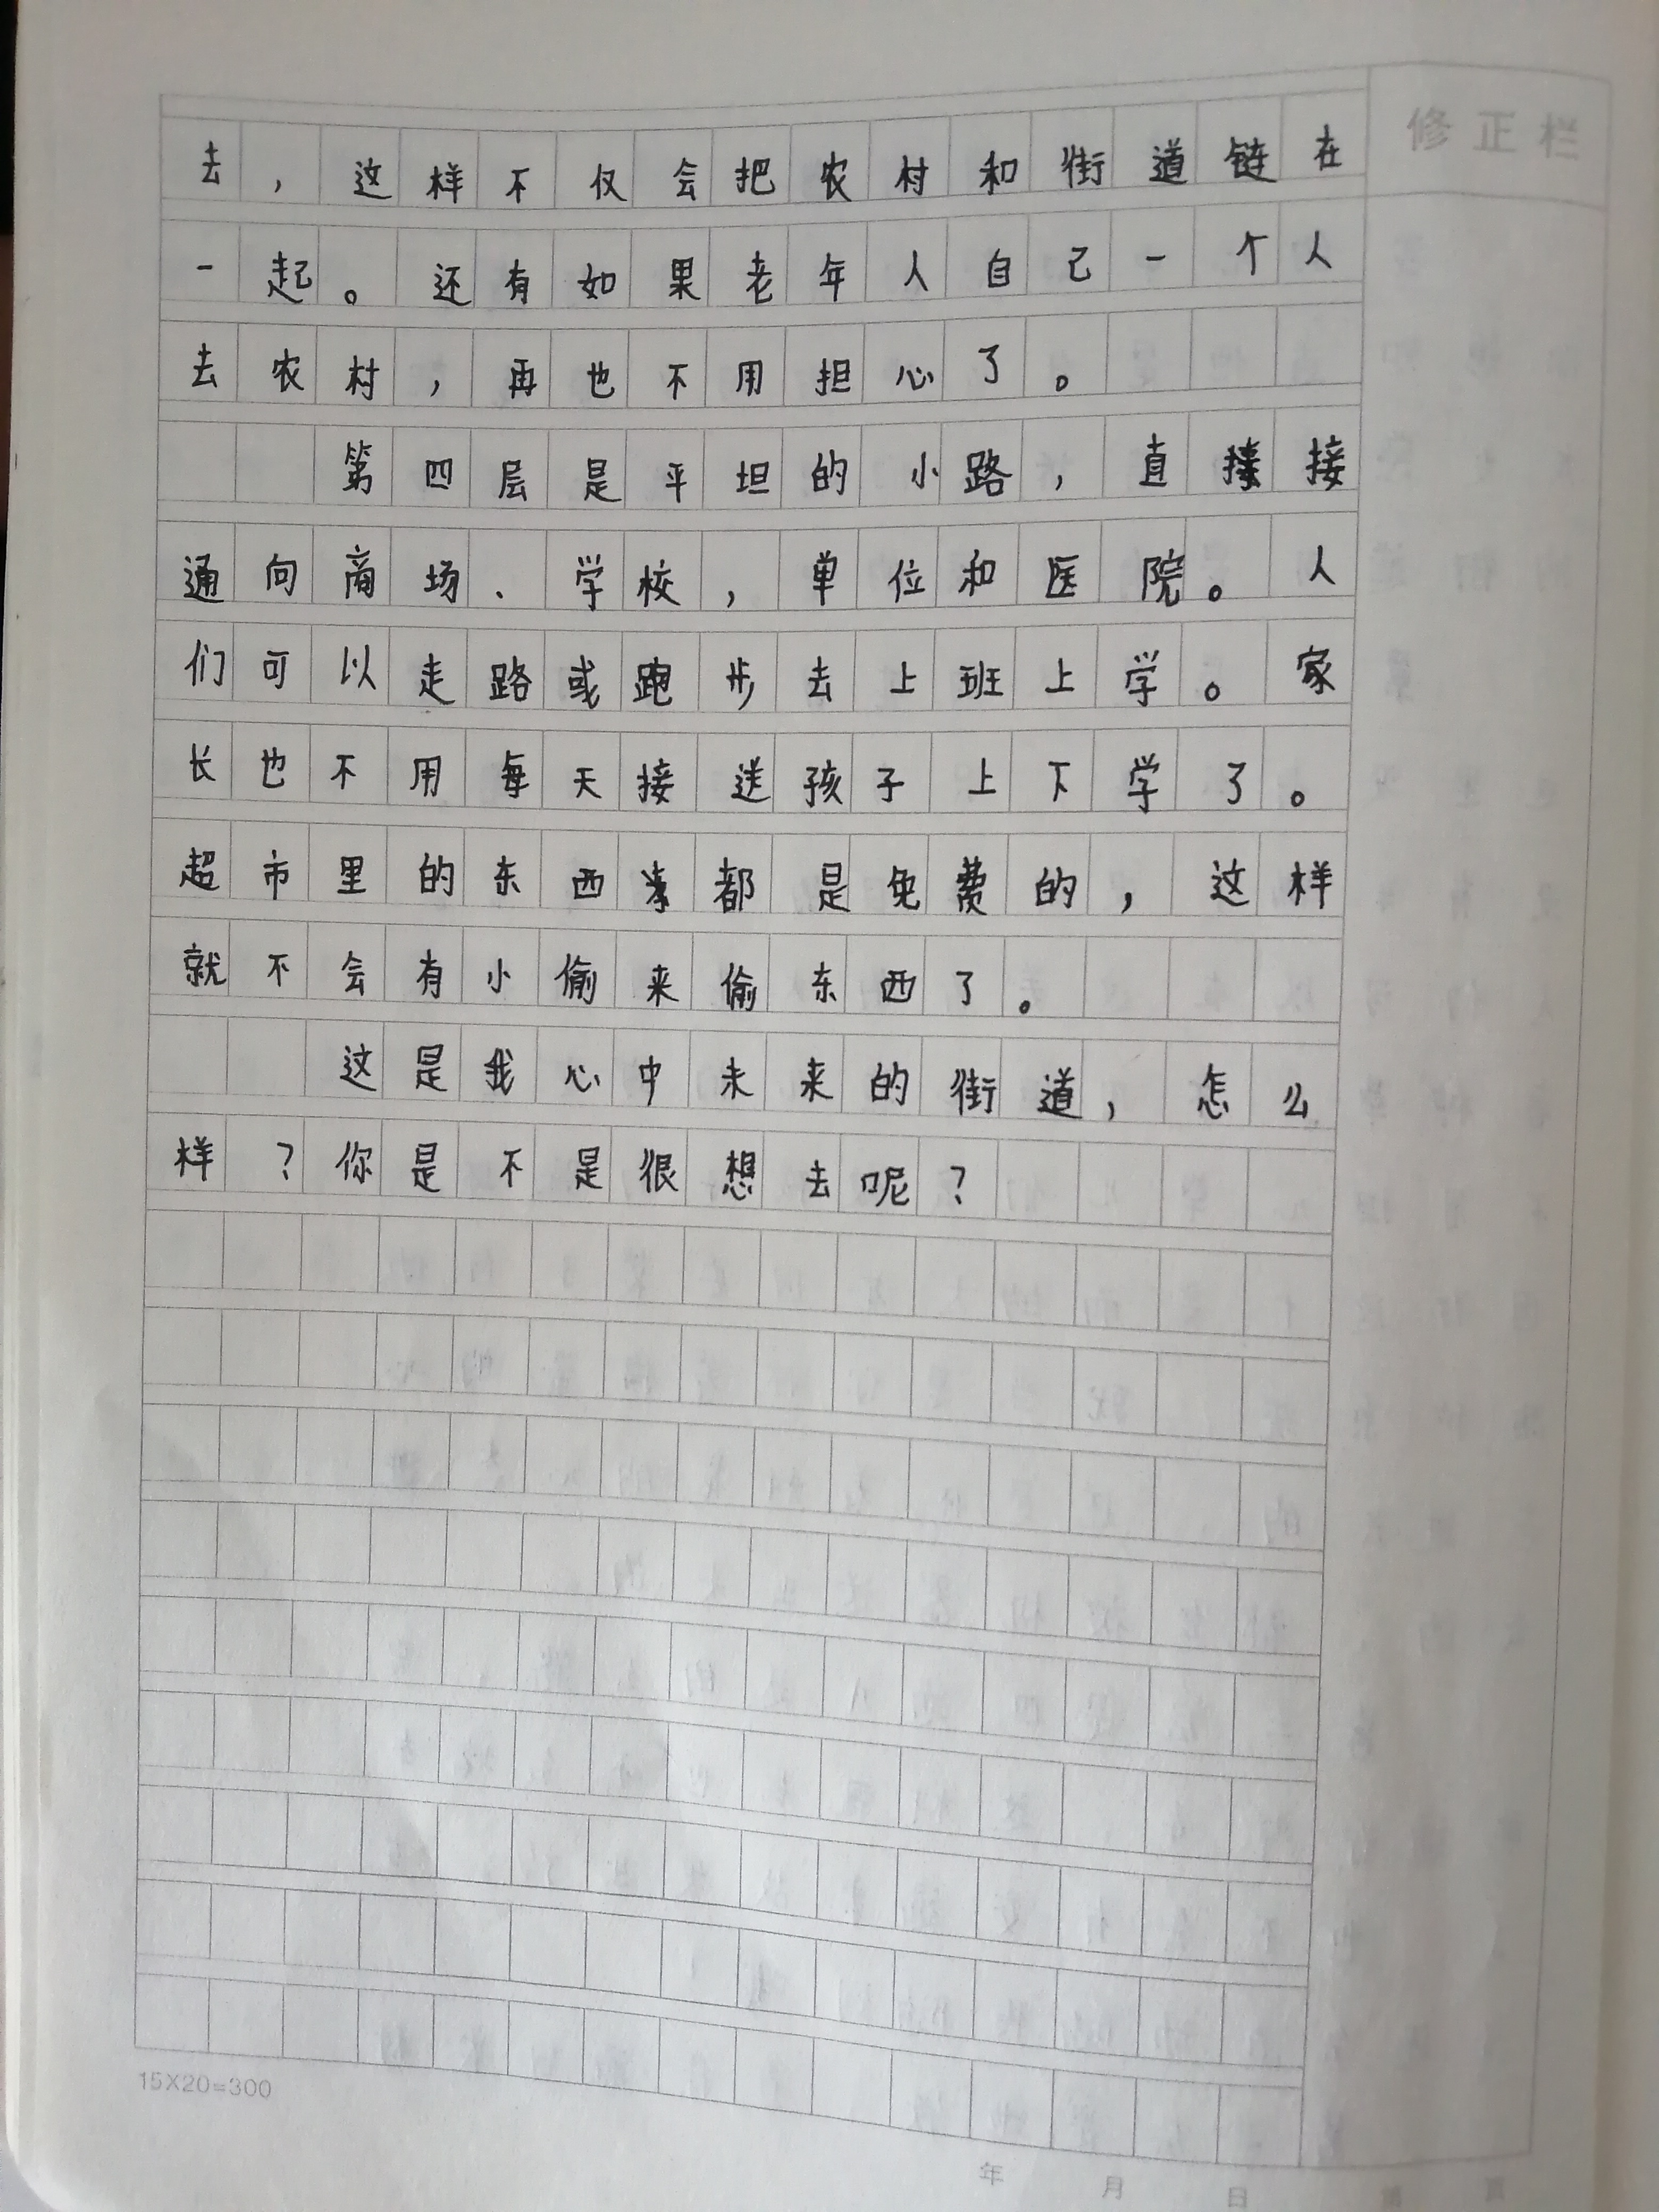 修正栏
去，这样不仅会把农村和街道链在
一起。还有如果老年人自己一个人
去农村，再也不用担心了。
第四层是平坦的小路，直接
通向商场、学校，单位和医院。人
们可以走路或跑步去上班上学。家
长也不用每天接送孩子上下学了。
超市里的东西都是免费的，这样
就不会有小偷来偷东西了。
这是我心中未来的街道，怎么
样？你是不是很想去呢？
15X20=300
年 月 日 第 页